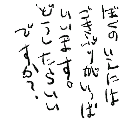 ぼくのいえには
ごきぶりがいっぱ
いいます。
どうしたらいい
ですか?